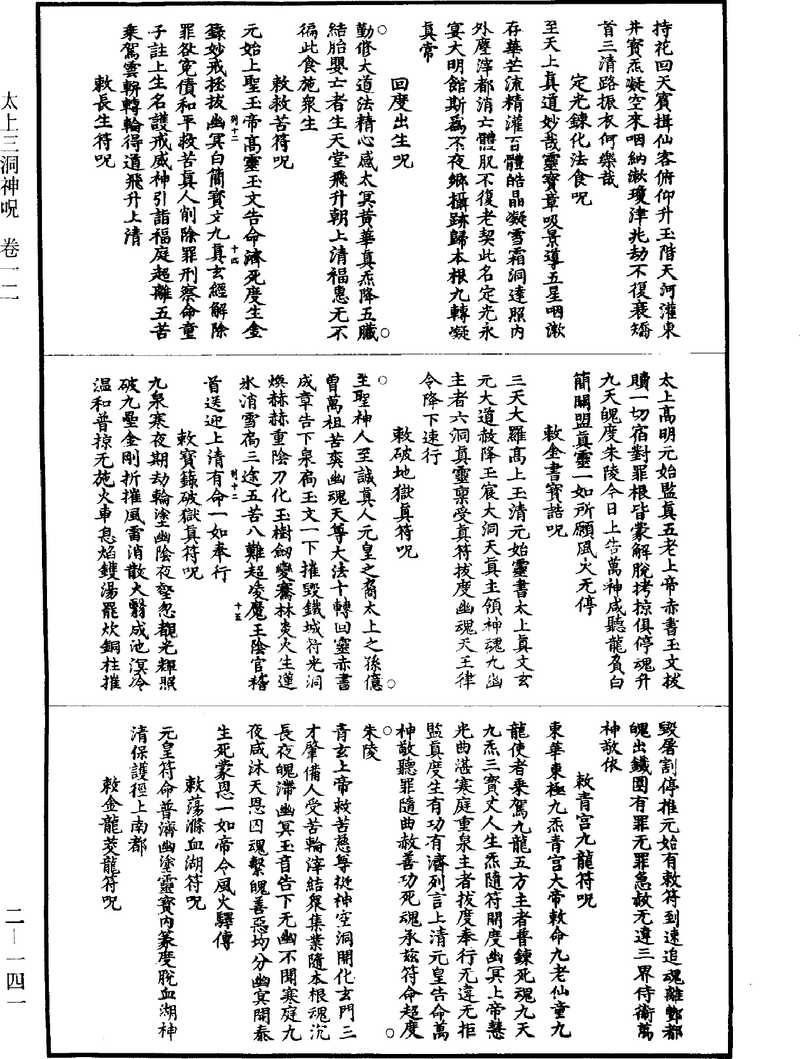 太上三洞神呪 卷一二
持花回天賓揖仙客俯仰升玉階天河灌東
井寶炁凝空來咽納漱瓊津兆劫不復衰矯
首三清路振衣何樂哉
定光鍊化法食呪
至天上真道妙哉靈寶章吸景導五星咽漱
存華芒流精灌百體皓晶凝雪霜洞達照內
外塵滓都消亡體肌不復老契此名定光永
宴大明館斯爲不夜鄉攝跡歸本根九轉凝
真常
回度出生呪
勤修大道法精心感太冥黃華真炁降五臟
結胎嬰亡者生天堂飛升朝上清福惠无不
徧此食施衆生
敕救苦符呪
元始上聖玉帝高靈玉文告命濟死度生金
籙妙戒拯拔幽冥白簡寶文九真玄經解除
罪欲冤債和平救苦真人削除罪刑察命童
子註上生名護戒威神引詣福庭超離五苦
乘駕雲軿轉輪得道飛升上清
敕長生符呪
太上高明元始監真五老上帝赤書玉文拔
贖一切宿對罪根皆蒙解脫拷掠俱停魂升
九天魄度朱陵今日上告萬神咸聽龍負白
簡關盟真靈一如所願風火无停
敕金書寶誥呪
三天大羅高上玉清元始靈書太上真文玄
元大道赦降玉宸大洞天真主領神魂九幽
主者六洞真靈稟受真符拔度幽魂天王律
令降下速行
敕破地獄真符呪
至聖神人至誠真人元皇之裔太上之孫億
曾萬祖苦爽幽魂天尊大法十轉回靈赤書
成章告下泉扃玉文一下摧毀鐵城符光洞
煥赫赫重陰刀化玉樹劒變騫林炎火生蓮
氷消雪扃三途五苦八難超淩魔王陰官稽
首送迎上清有命一如奉行
敕寶籙破獄真符呪
九泉寒夜期劫輪塗幽陰夜壑忽觀光輝照
破九壘金剛折摧風雷消散火翳咸池溟泠
温和普掠无施火車息焰鑊湯罷炊銅柱摧
毀屠割停推元始有敕符到速追魂離酆都
魄出鐵圍有罪无罪急赦无違三界侍衛萬
神敬依
敕青宮九龍符呪
東華東極九炁青宮大帝敕命九老仙童九
龍使者乘駕九龍五方主者普鍊死魂九天
九炁三寶丈人生炁隨符開度幽冥上帝慧
光曲湛寒庭重泉主者拔度奉行无違无拒
監真度生有功有濟列言上清元皇告命萬
神敬聽罪隨曲赦善功死魂承兹符命超度
朱陵
青玄上帝救苦慈尊從神空洞開化玄門三
才肇備人受苦輪滓結聚集業隨本根魂沉
長夜魄滯幽冥玉音告下无幽不聞寒庭九
夜咸沐天恩囚魂繫魄善惡均分幽冥開泰
生死蒙恩一如帝令風火驛傳
敕蕩滌血湖符呪
元皇符命普濟幽塗靈寶內篆度脫血湖神
清保護徑上南都
敕金龍茭龍符呪
二—一四一